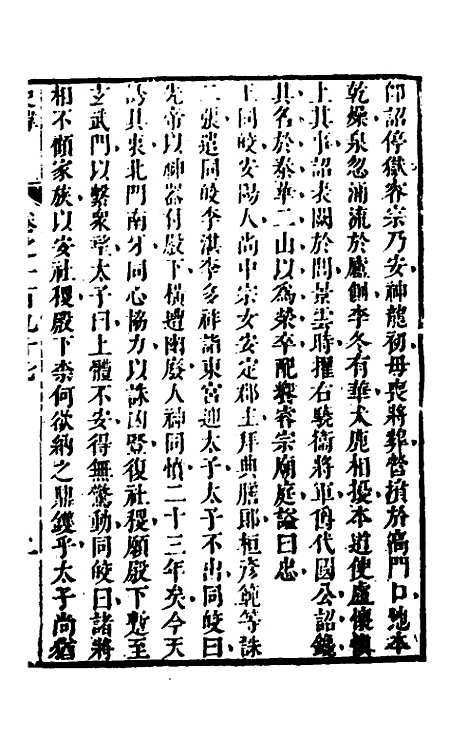 卽詔停獄睿宗乃安神龍初母喪將葬營壙於闕門口地本
乾燥泉忽涌流於廬側李冬有華犬鹿相擾本道使盧懷愼
上其事詔表闕於閭景雲時擢右驍衞將軍俄代國公詔鐫
其名於泰華二山以爲榮卒配饗睿宗廟庭謚曰忠
王同皎安陽人尚中宗女安定郡主拜典膳郎桓彥範等誅
二張遣同皎李湛李多祚詣東宮迎太子太子不出同皎曰
先帝以神器付殿下橫遭幽廢人神同憤二十三年矣今天
誘其衷北門南牙同心協力以誅凶豎復社稷願殿下蹔至
玄武門以繫衆望太子曰上體不安得無驚動同皎曰諸將
相不顧家族以安社稷殿下柰何欲納之鼎鑊乎太子尚猶
卷之一百九十七